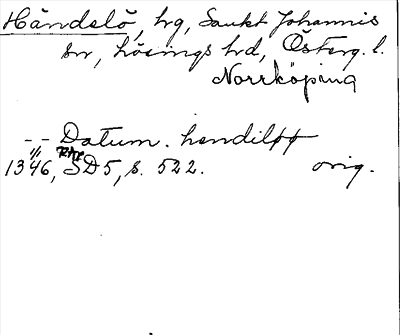 Händelö, hg, Sankt Johannis
sn, Lösings hd, Österg. l.
Norrköping
-- Datum. hendiløø
1346, 11/4 RAp SD 5, s. 522. orig.